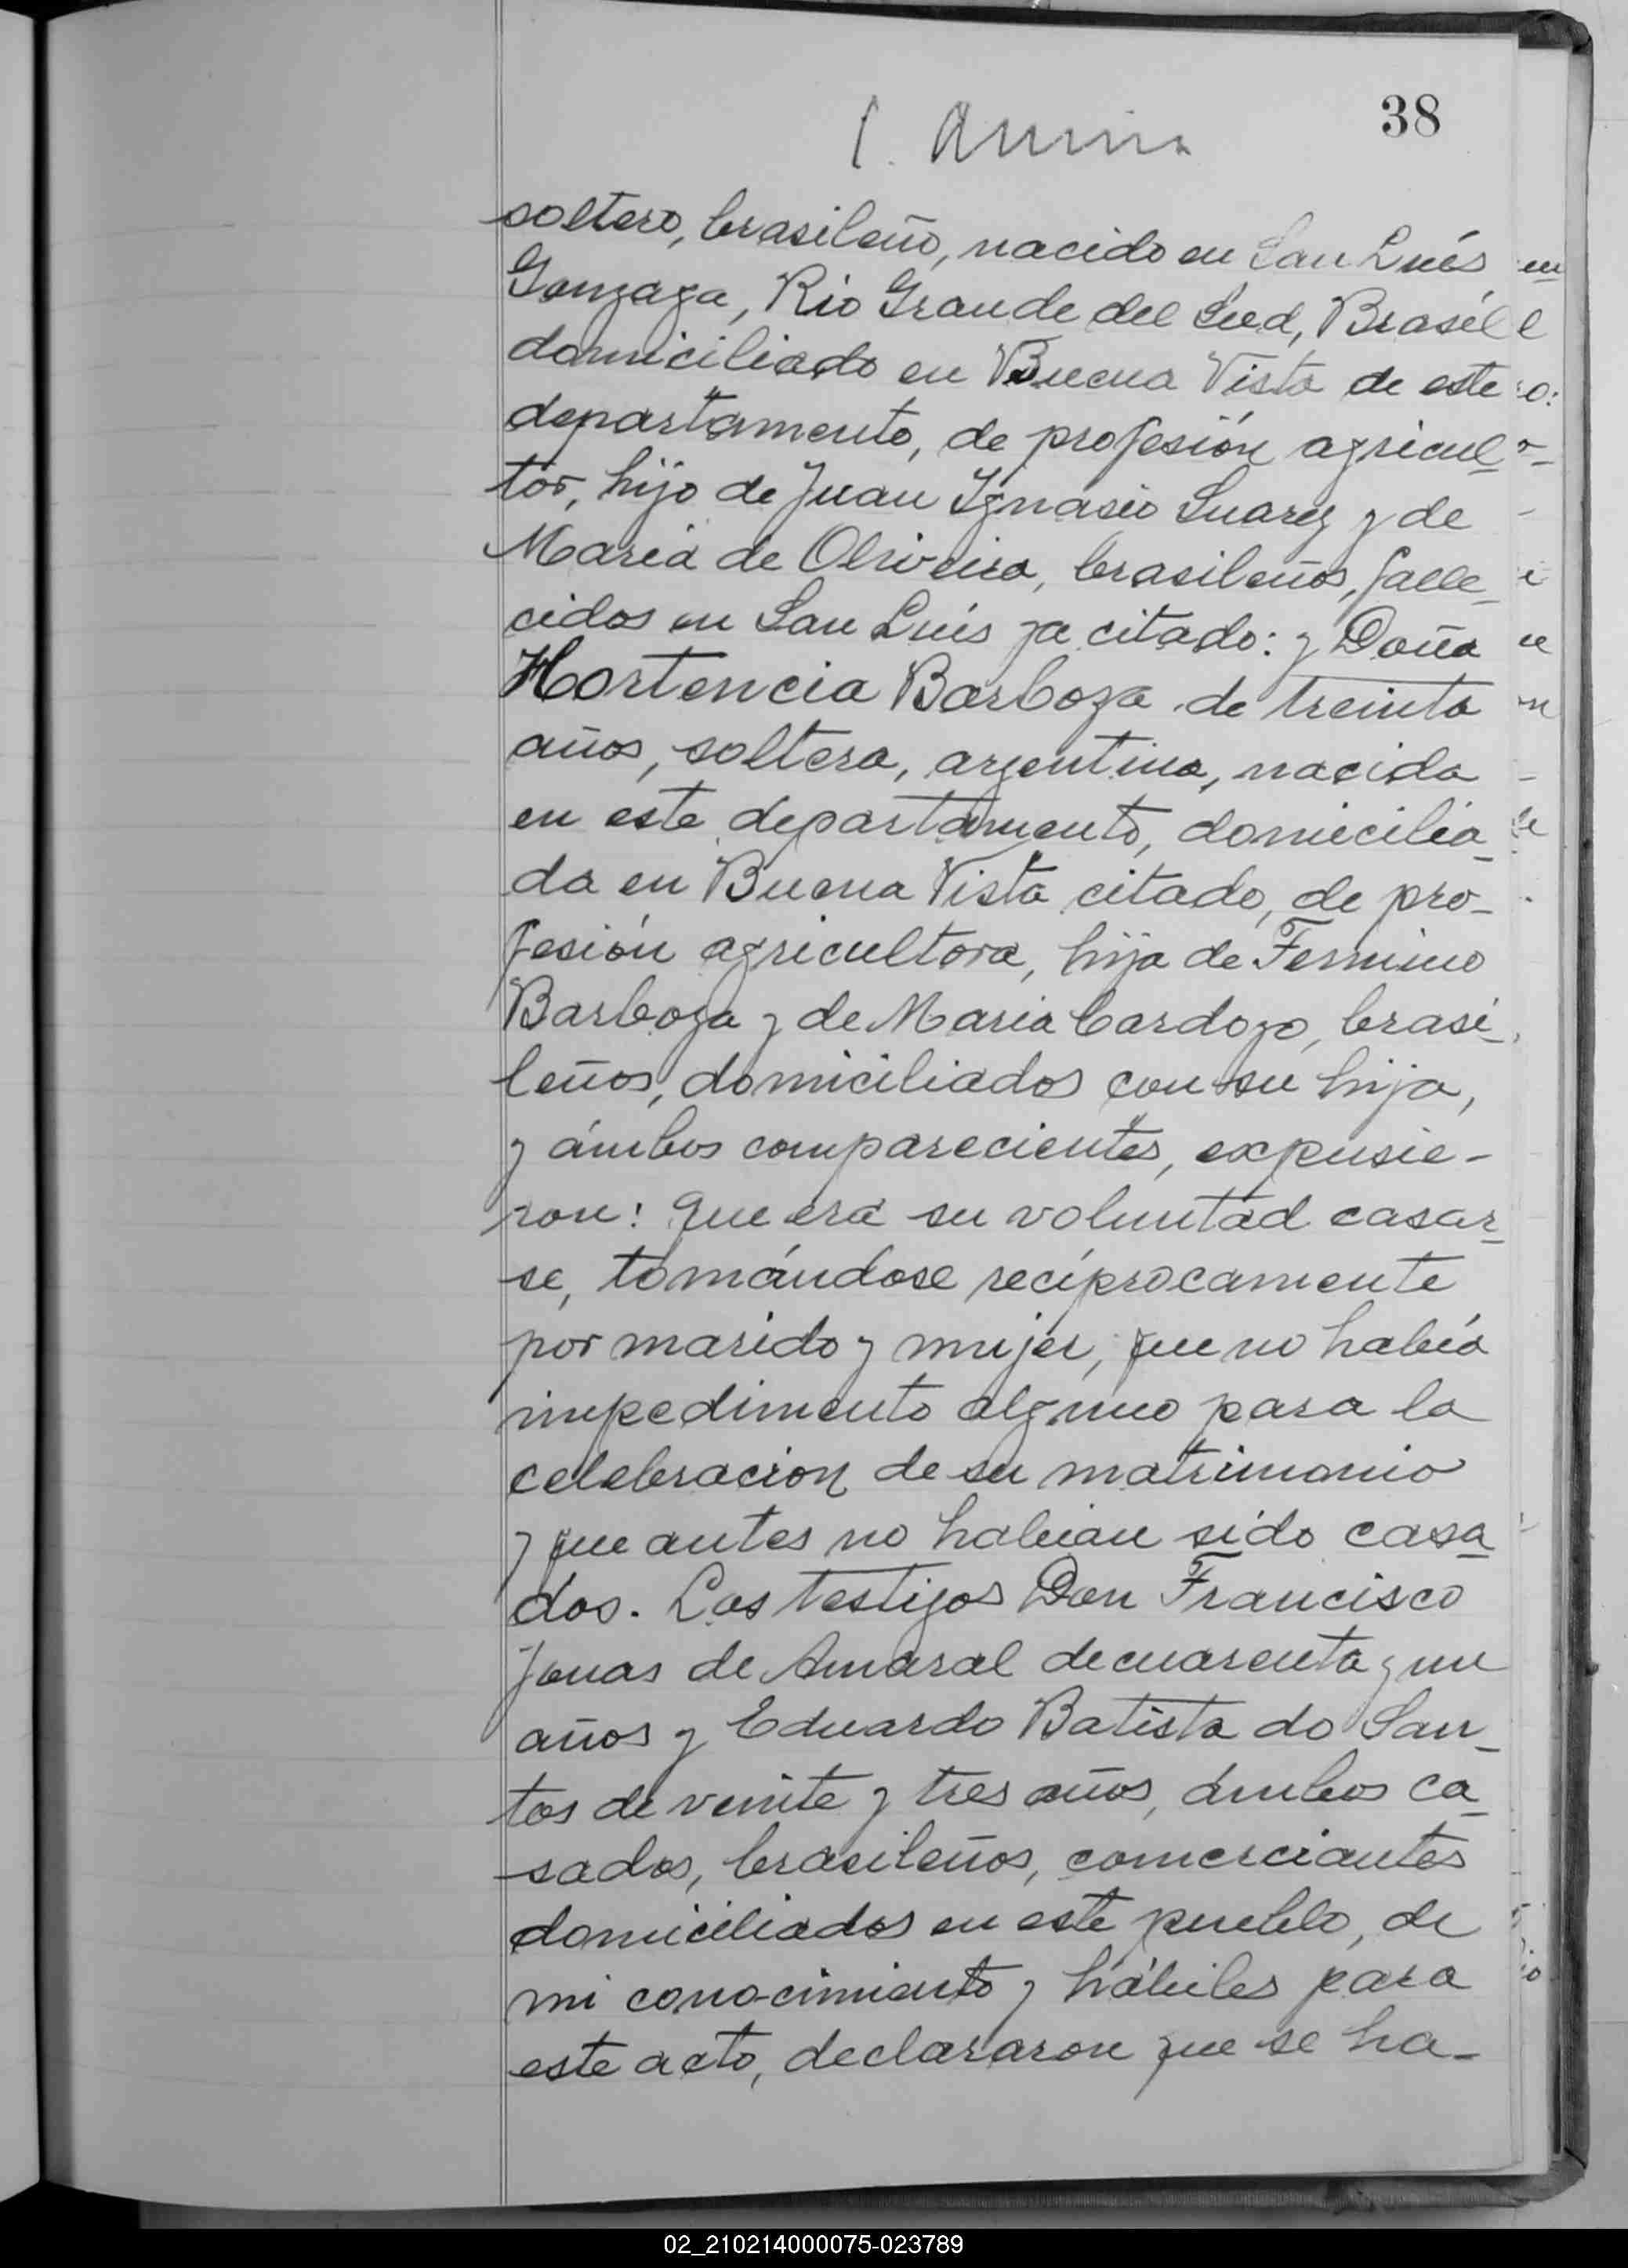 38
soltero, brasileño, nacido en San Luís
Gonzaga, Rio Grande del Sud, Brasíl
domiciliado en Buena Vista de este
departamento, de profesión agricul-
tor, hijo de Juan Ygnasio Suarez y de
María de Oliveira, brasileños, falle-
cidos en San Luís ya citado: y Doña
Hortencia Barboza de treinta
años, soltera, argentina, nacida
en este departamento, domicilia-
da en Buena Vista citado, de pro-
fesión agricultora, hija de Fermino
Barboza y de María Cardozo, brasi-
leños, domiciliados con su hija,
y ámbos comparecientes, expusie-
ron: que era su voluntad casar-
se, tomándose recíprocamente
por marido y mujer, que no había
impedimento alguno para la
celebracion de su matrimonio
y que antes no habian sido casa-
dos. Los testigos Don Francisco
Jonas de Amaral de cuarenta y un
años y Eduardo Batista do San-
tos de veinte y tres años, ámbos ca-
sados, brasileños, comerciantes
domiciliados en este pueblo, de
mi conocimiento y hábiles para
este acto, declararon que se ha-
02_210214000075-023789